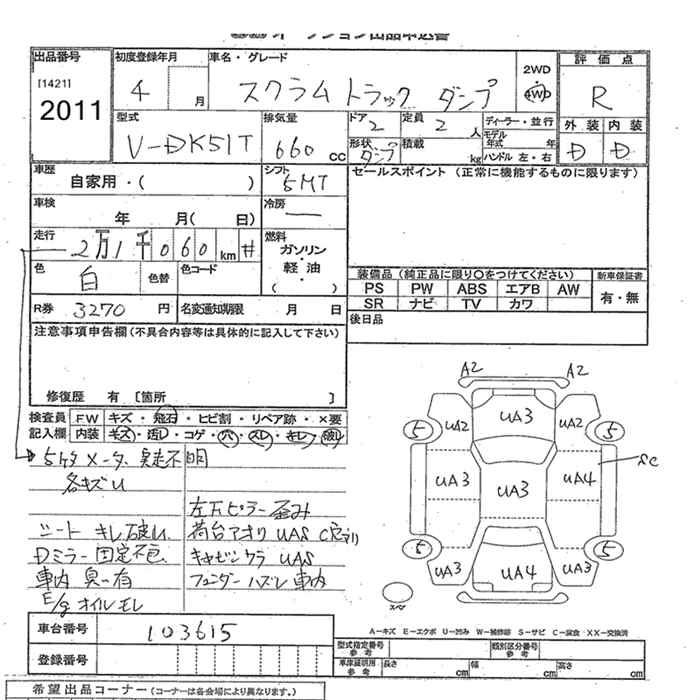 オークション出品申込書
出品番号 初度登録年月 車名・グレード 2WD 評価点
[1421] 4 月 スクラムトラック ダンプ 4WD R
2011
型式 排気量 ドア 2 定員 2 人 ディーラー・並行 外装 内装
V-DK51T 660 CC 形状 ダンプ 積載 kg モデル年式 年 D D
ハンドル 左・右
車歴 シフト セールスポイント (正常に機能するものに限ります)
自家用・( ) 5MT
車検 冷房
年 月( 日) —
走行 2万1千060km # 燃料 ガソリン・軽油 ( )
色 白 色替 色コード 装備品(純正品に限り○をつけてください) 新車保証書
PS PW ABS エアB AW 有・無
R券 3270 円 名変通知期限 月 日 SR ナビ TV カワ
後日品
注意事項申告欄(不具合内容等は具体的に記入して下さい)
修復歴 有 [箇所 ]
検査員 FW キズ・飛石・ヒビ割・リペア跡・×要
記入欄 内装 キズ・汚レ・コゲ・穴・スレ・キレ・破レ
5ケタメーター 実走不明
各キズU
左Fピラー歪み
シート キレ破レ 荷台アオリ UAS
Dミラー固定不良 キャビンウラ UAS
車内 臭ー有 フェンダーハズレ 車内
E/g オイルモレ
A2 A2
UA3
UA2 UA2
5 5
SC
UA3 UA3 UA4
5 5
UA3 UA4 UA3
スペア
A-キズ E-エクボ U-凹み W-補修跡 S-サビ C-腐食 XX-交換済
車台番号 103615
型式指定番号 参考 類別区分番号 参考
登録番号 車庫証明用 参考 長さ cm 幅 cm 高さ cm
希望出品コーナー(コーナーは各会場により異なります。)